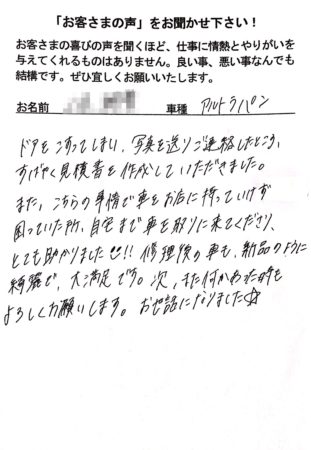 「お客さまの声」をお聞かせ下さい！
お客さまの喜びの声を聞くほど、仕事に情熱とやりがいを
与えてくれるものはありません。良い事、悪い事なんでも
結構です。ぜひ宜しくお願いいたします。
お名前 車種 アルトラパン
ドアをこすってしまい、写真を送りご連絡したところ、
すばやく見積書を作成していただきました。
また、こちらの事情で車をお店に持っていけず
困っていた所、自宅まで車を取りに来てくださり、
とても助かりました!! 修理後の車も、新品のように
綺麗で、大満足です。次、また何かあった時も
よろしくお願いします。お世話になりました☆